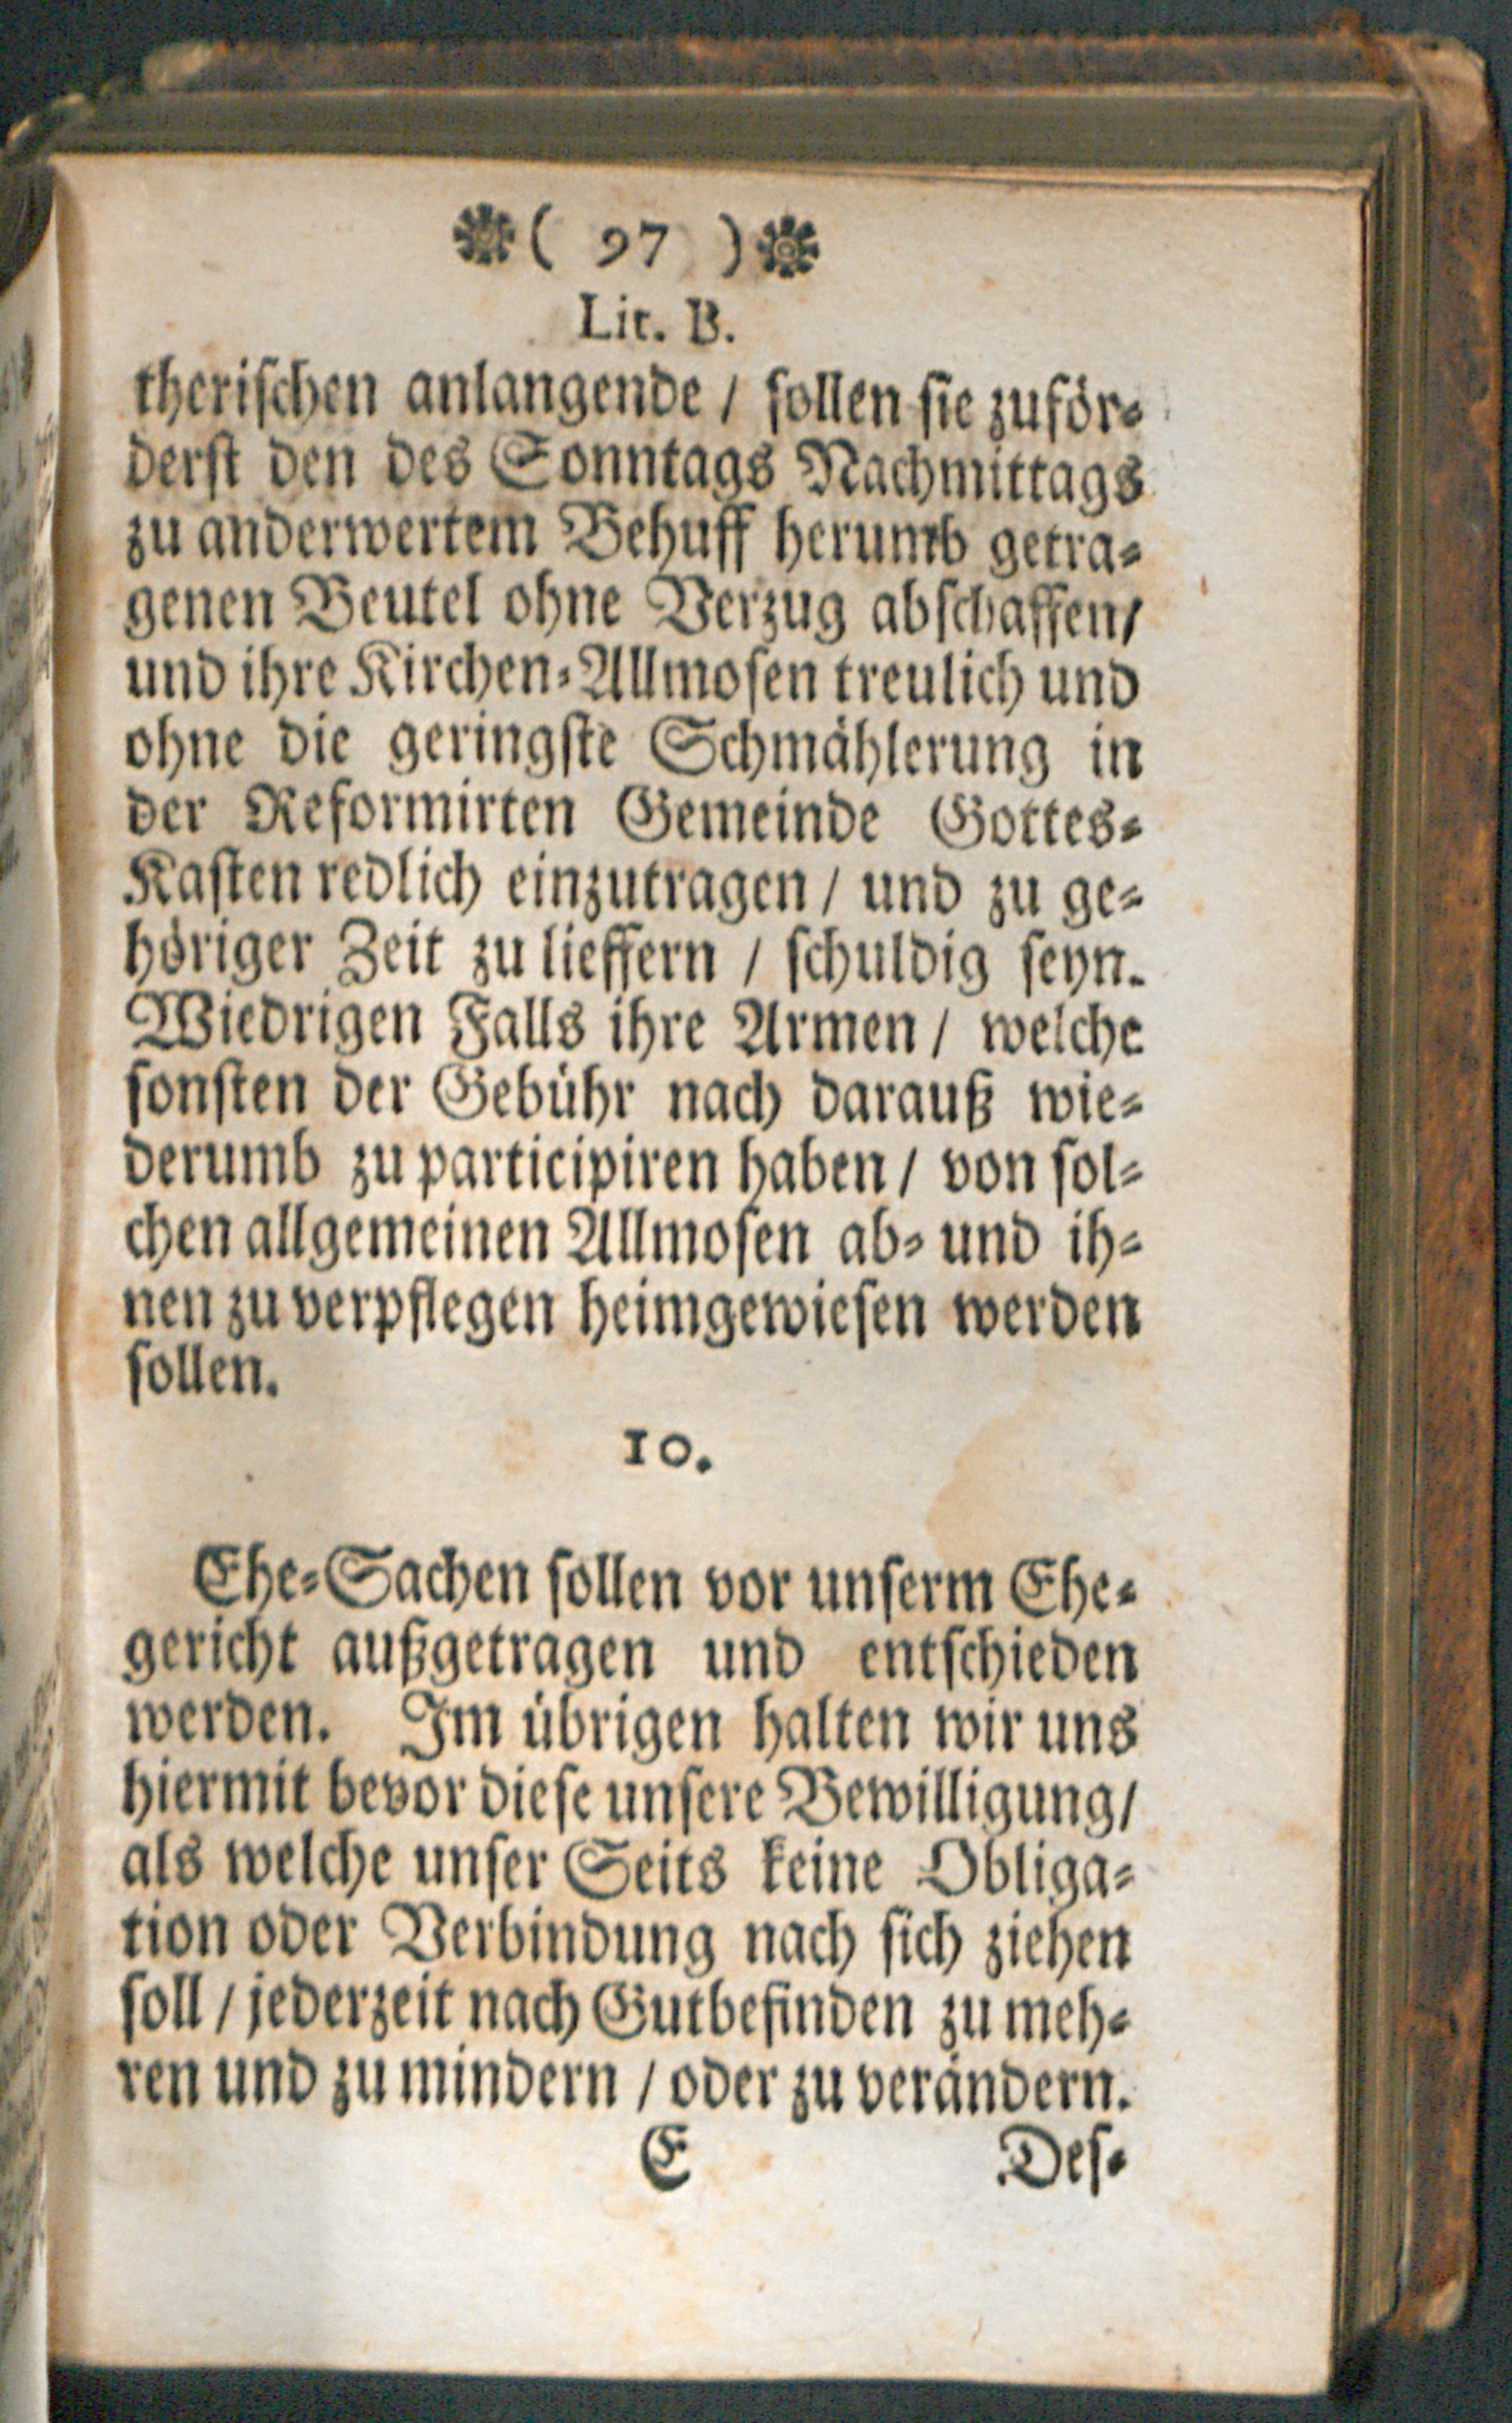 ( 97 )
Lit. B.
therischen anlangende / sollen sie zuför-
derst den des Sonntags Nachmittags
zu anderwertem Behuff herumb getra-
genen Beutel ohne Verzug abschaffen/
und ihre Kirchen-Allmosen treulich und
ohne die geringste Schmählerung in
der Reformirten Gemeinde Gottes-
Kasten redlich einzutragen / und zu ge-
höriger Zeit zu lieffern / schuldig seyn.
Wiedrigen Falls ihre Armen / welche
sonsten der Gebühr nach darauß wie-
derumb zu participiren haben / von sol-
chen allgemeinen Allmosen ab- und ih-
nen zu verpflegen heimgewiesen werden
sollen.
10.
Ehe-Sachen sollen vor unserm Ehe-
gericht außgetragen und entschieden
werden. Im übrigen halten wir uns
hiermit bevor diese unsere Bewilligung/
als welche unser Seits keine Obliga-
tion oder Verbindung nach sich ziehen
soll / jederzeit nach Gutbefinden zu meh-
ren und zu mindern / oder zu verändern.
E Des-